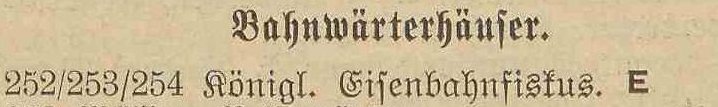 Bahnwärterhäuser.
252/253/254 Königl. Eisenbahnfiskus. E